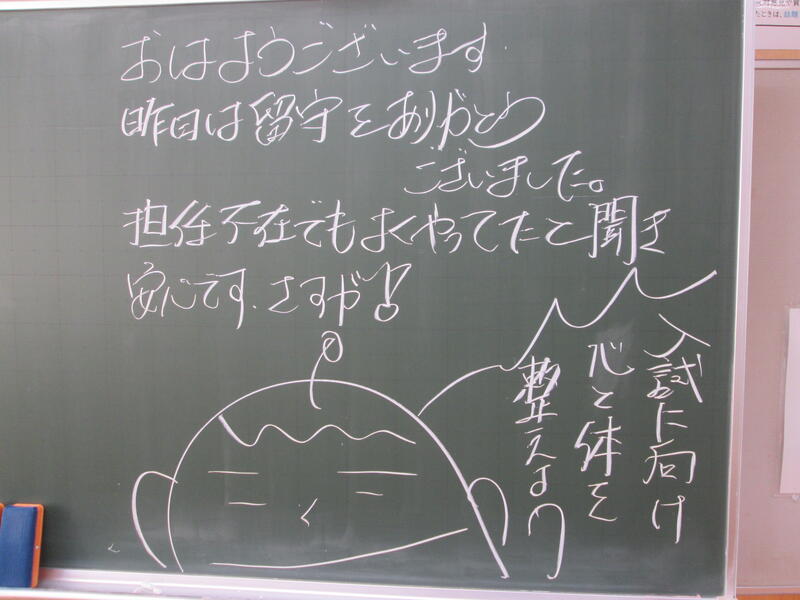 おはようございます.
昨日は留守をありがとう
ございました。
担任不在でもよくやってたと聞き
安心です.さすが!
入試に向け
心と体を
整えよう